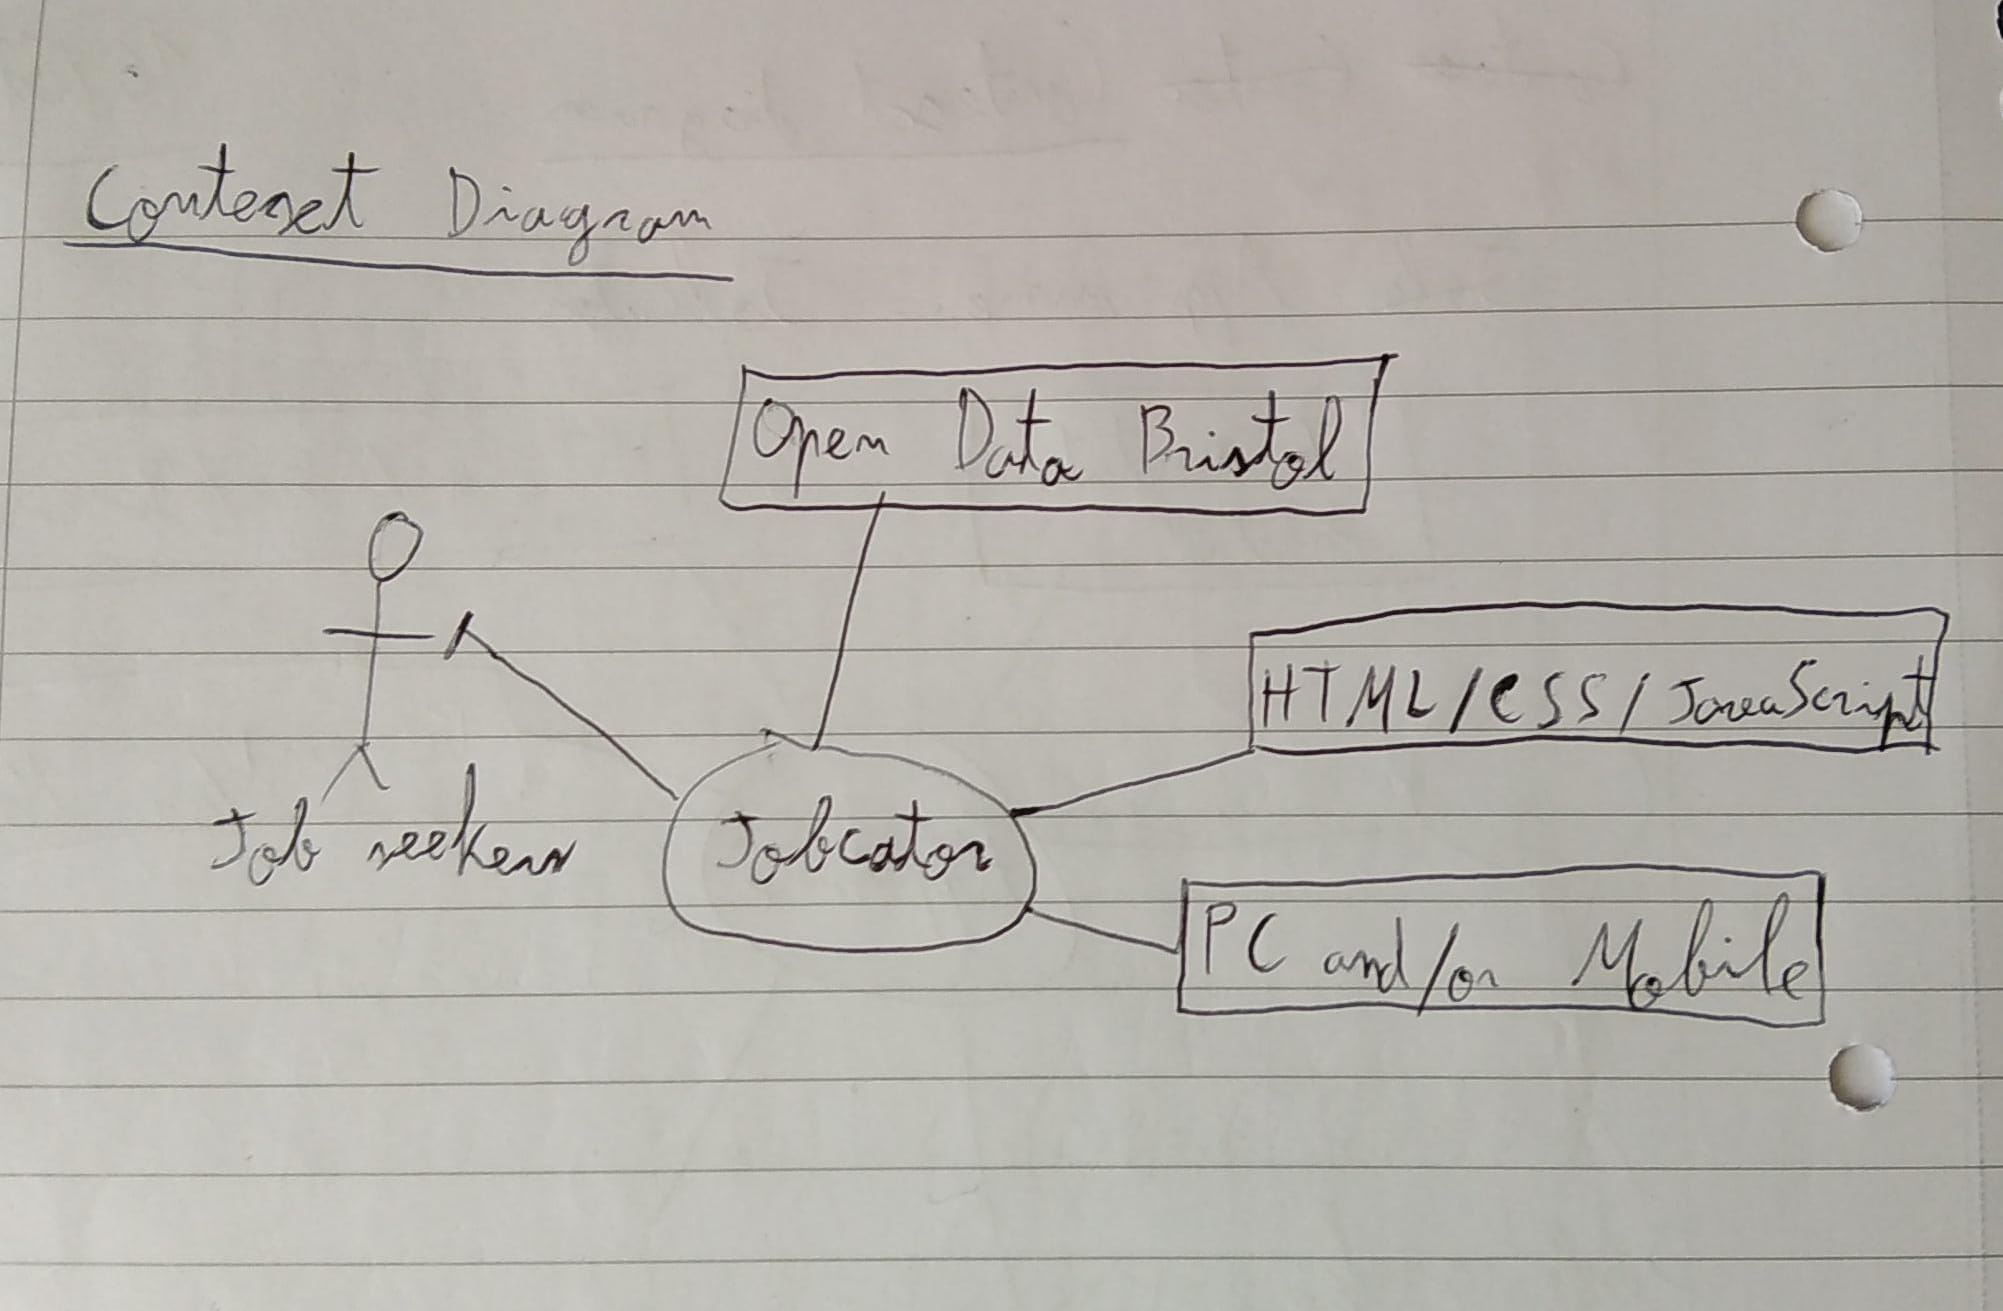 Context Diagram
Open Data Bristol
HTML/CSS/JavaScript
Job seekers
Jobcator
PC and/or Mobile